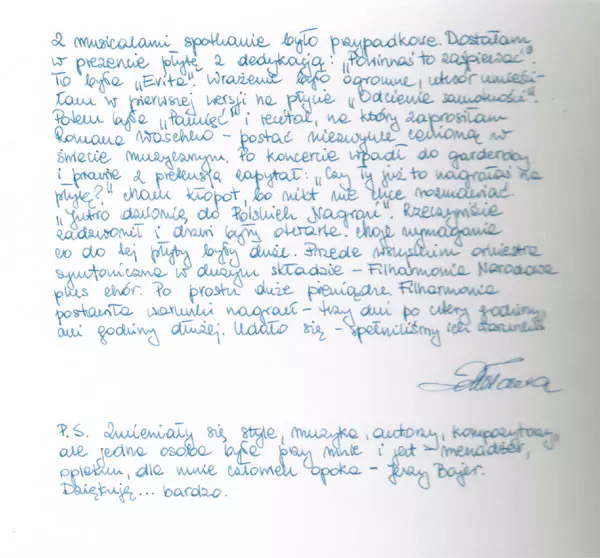 Z musicalami spotkanie było przypadkowe. Dostałam
w prezencie płytę z dedykacją: "Powinnaś to zaśpiewać".
To była "Evita". Wrażenie było ogromne, utwór umieści-
łam w pierwszej wersji na płycie "Odcienie samotności".
Potem była "Pamięć" i recital, na który zaprosiłam
Romana Waschko - postać niezwykle cenioną w
świecie muzycznym. Po koncercie wpadł do garderoby
i prawie z pretensją zapytał: "Czy Ty już to nagrałaś na
płytę?" Mam kłopot, bo nikt nie chce rozmawiać.
"Jutro dzwonię do Polskich Nagrań". Rzeczywiście
zadzwonił i drzwi były otwarte choć wymagania
co do tej płyty były duże. Przede wszystkim orkiestra
symfoniczna w dużym składzie - Filharmonia Narodowa
plus chór. Po prostu duże pieniądze. Filharmonia
postawiła warunki nagrań - trzy dni po cztery godziny,
ani godziny dłużej. Udało się - spełniliśmy ich warunki
P.S. Zmieniały się style, muzyka, autorzy, kompozytorzy,
ale jedna osoba była przy mnie i jest - menadżer,
opiekun, dla mnie człowiek opoka - Jerzy Bajer.
Dziękuję... bardzo.